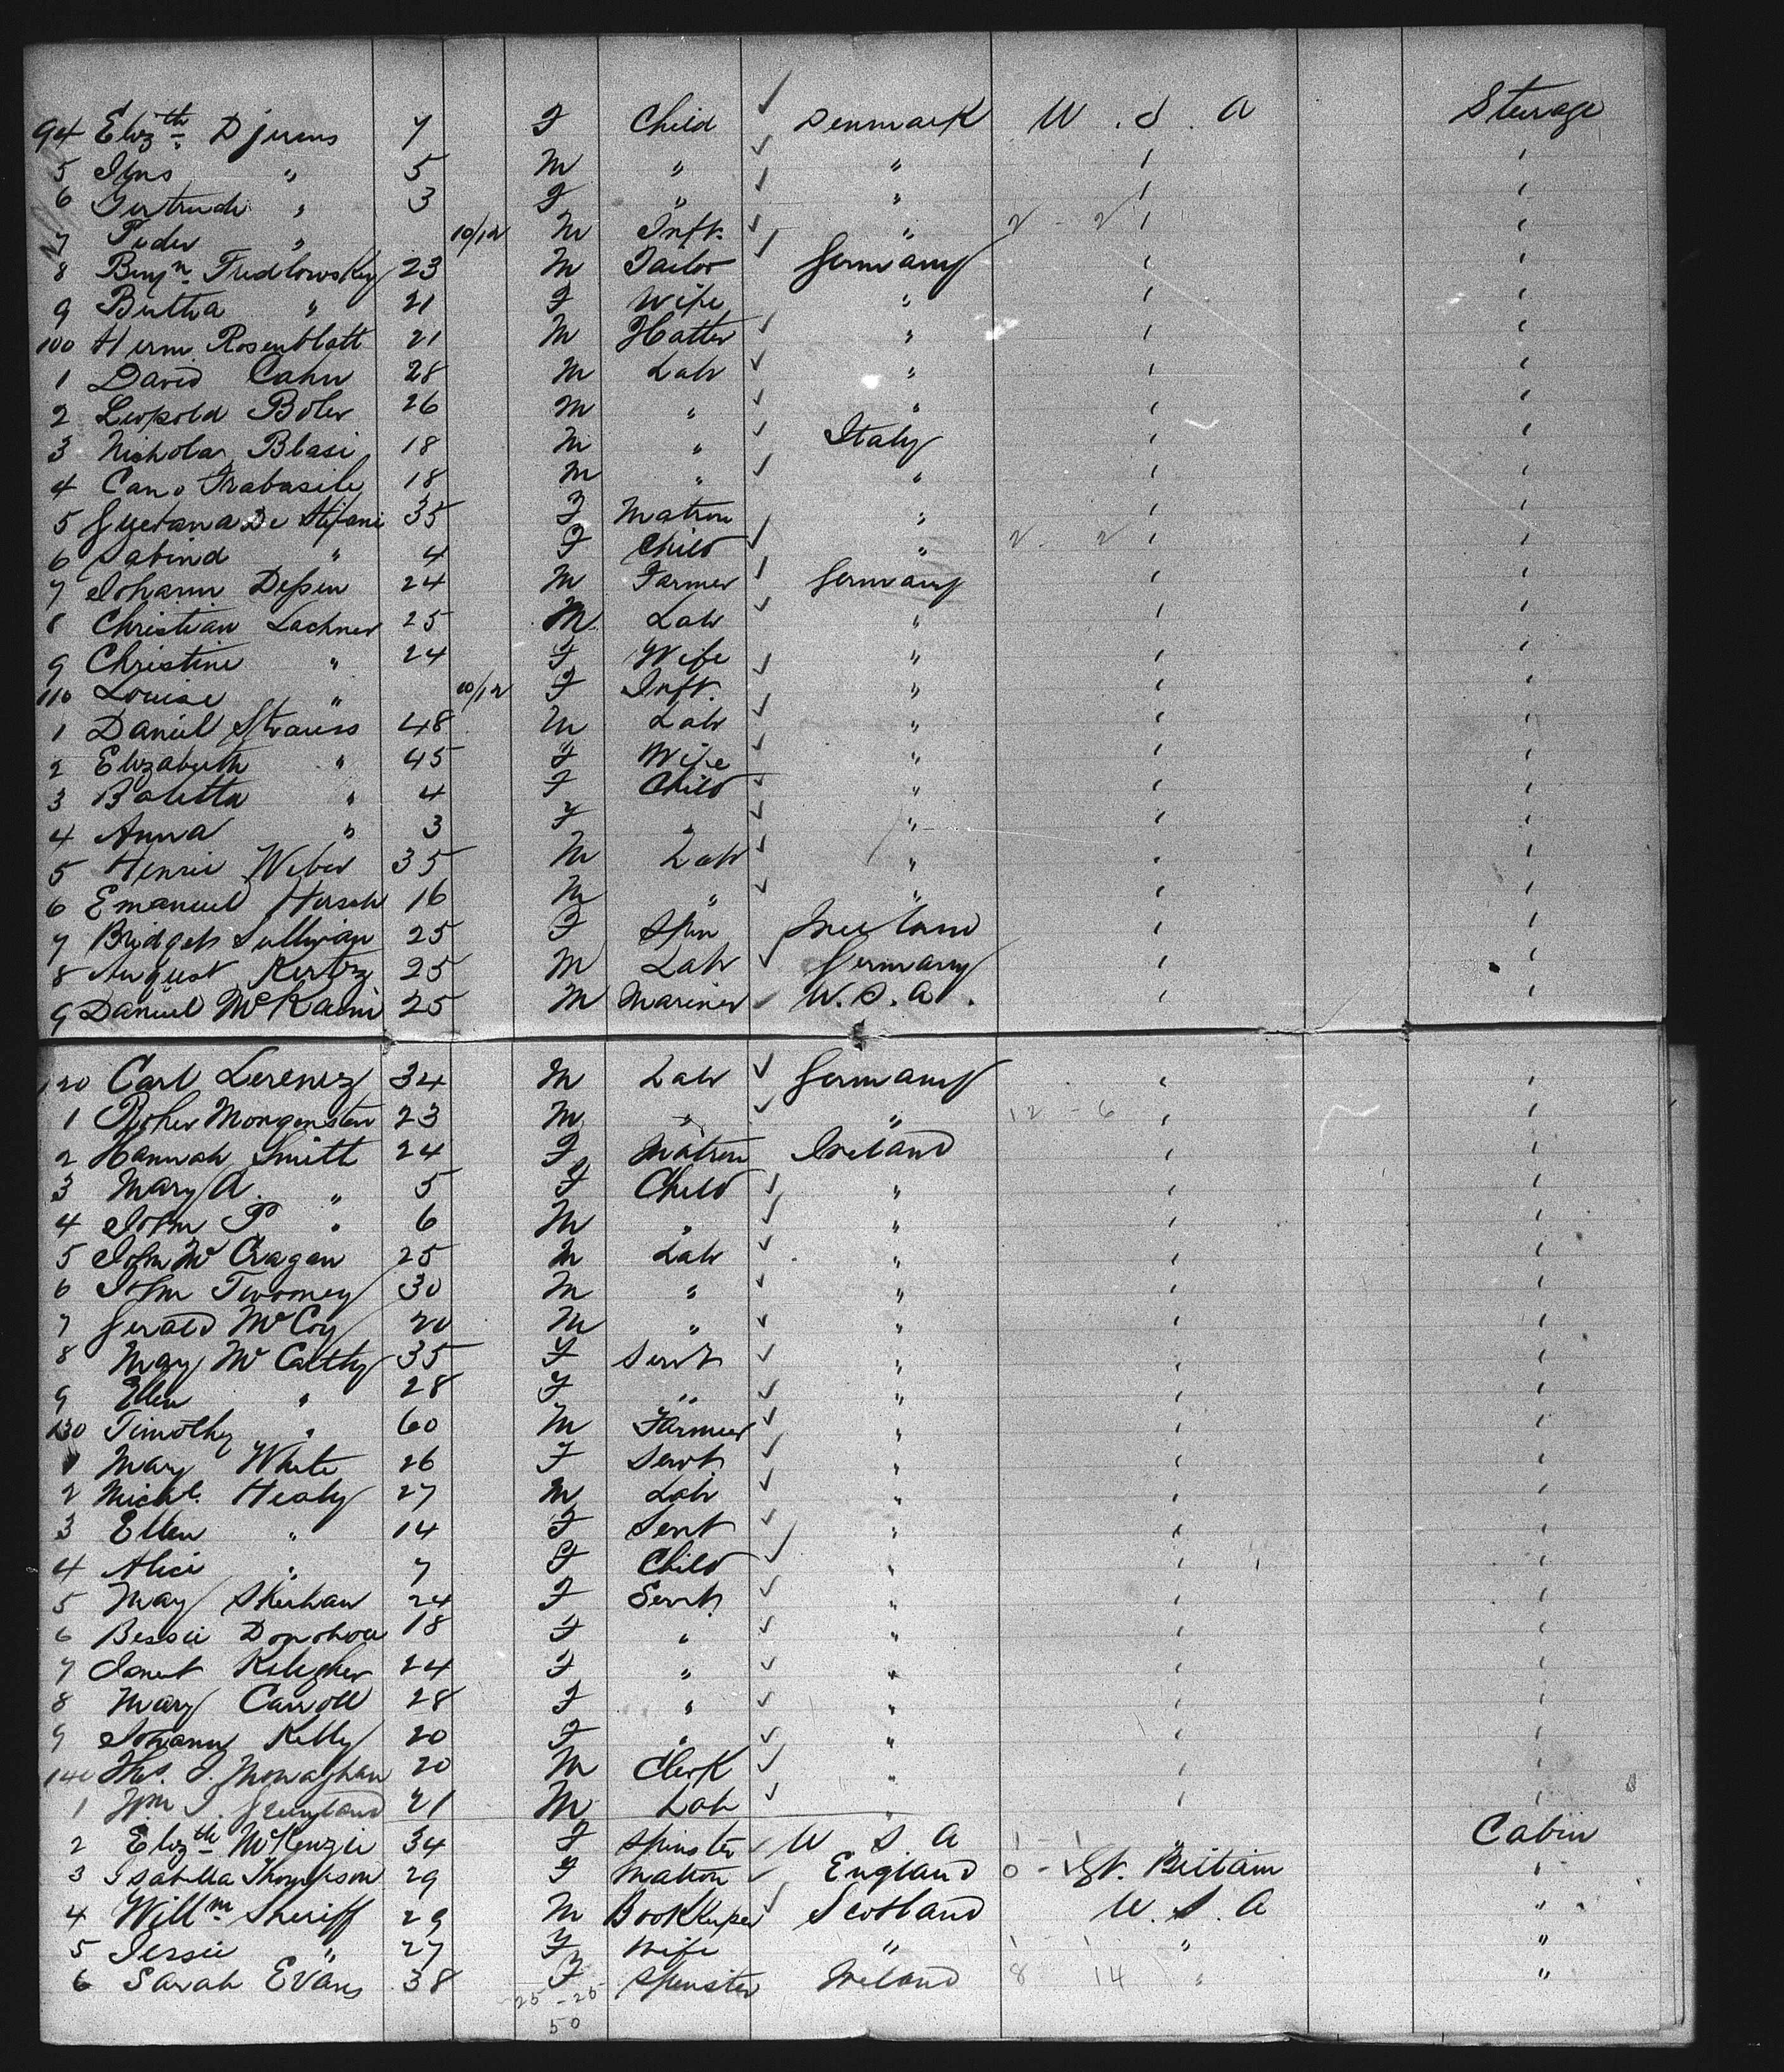 94 Elizth Djurns 7 F Child Denmark U. S. A Steerage
5 Jens " 5 M " " " "
6 Gertrude " 3 F " " " "
7 Peder " 10/12 M Inft. " 2 - 2 " "
8 Benjn Fredlowsky 23 M Tailor Germany " "
9 Bertha " 21 F Wife " " "
100 Herm. Rosenblatt 21 M Hatter " " "
1 David Cahn 28 M Labr " " "
2 Leopold Boler 26 M " " " "
3 Nicholas Blasi 18 M " Italy " "
4 Cano Trabasile 18 M " " " "
5 De Stefani 35 F Matron " " "
6 Sabind " 4 F Child " 2 - 2 " "
7 Johann Dessen 24 M Farmer Germany " "
8 Christian Lachner 25 M Labr " " "
9 Christine " 24 F Wife " " "
110 Louise " 10/12 F Inft. " " "
1 Daniel Strauss 48 M Labr " " "
2 Elizabeth " 45 F Wife " " "
3 Baletta " 4 F Child " " "
4 Anna " 3 F " " " "
5 Henri Weber 35 M Labr " " "
6 Emanuel Hersch 16 M " " " "
7 Bridget Sullivan 25 F Spin Ireland " "
8 August Kertzy 25 M Labr Germany " "
9 Daniel McKaini 25 M Mariner U. S. A. " "
120 Carl Lerenz 34 M Labr Germany " "
1 Morgenstern 23 M " " 12 - 6 " "
2 Hannah Smith 24 F Matron Ireland " "
3 Mary A. " 5 F Child " " "
4 John P " 6 M " " " "
5 John McCragan 25 M Labr " " "
6 John Twomey 30 M " " " "
7 Gerald McCoy 20 M " " " "
8 Mary McCarthy 35 F Servt " " "
9 Ellen " 28 F " " " "
130 Timothy " 60 M Farmer " " "
1 Mary White 26 F Servt " " "
2 Michl. Healy 27 M Labr " " "
3 Ellen " 14 F Servt " " "
4 Alice " 7 F Child " " "
5 Mary Skeehan 24 F Servt. " " "
6 Bessie Donohoe 18 F " " " "
7 Janet Kelegher 24 F " " " "
8 Mary Carroll 28 F " " " "
9 Johanny Kelly 20 F " " " "
140 Thos. J. Monaghan 20 M Clerk " " "
1 Wm J. 21 M Labr " " "
2 Elizth McKenzie 34 F Spinster U S A 1 - 1 " Cabin
3 Isabella Thompson 29 F Matron England 0 - 1 Gt. Brittain "
4 Willm Sheriff 29 M Bookkeeper Scotland U. S. A "
5 Jessie " 27 F Wife " 1 - 1 " "
6 Sarah Evans 38 F Spinster Ireland 8 14 " "
25 - 25
50